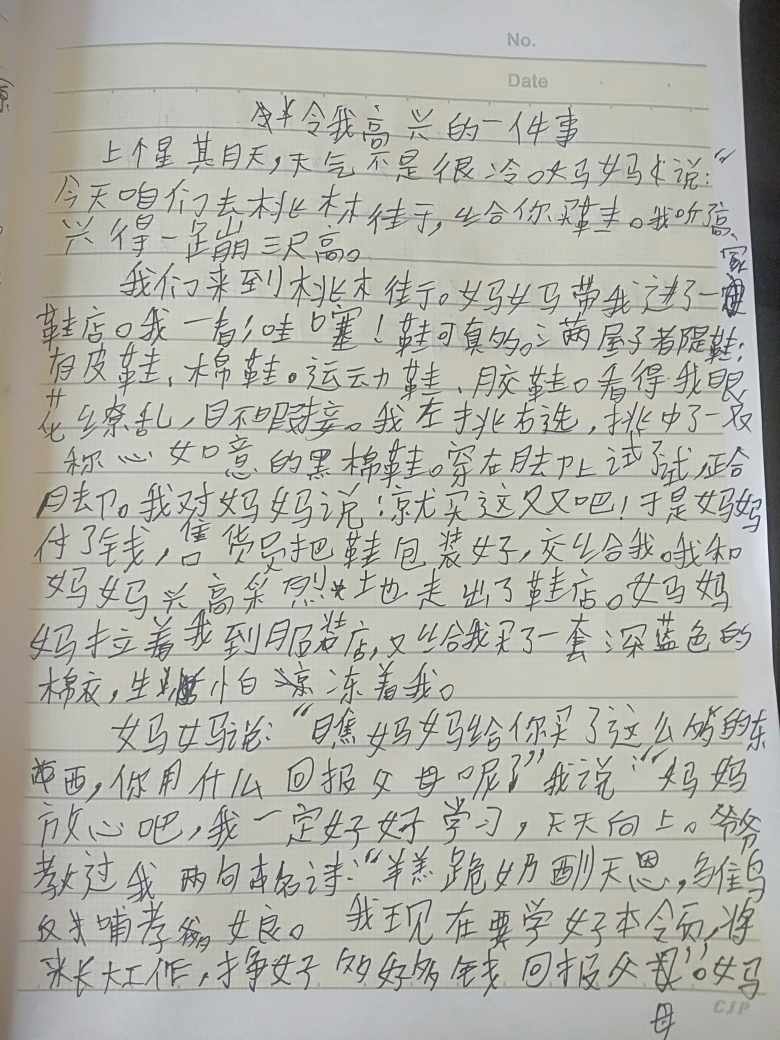 No.
Date
令我高兴的一件事
上个星期天,天气不是很冷。妈妈说:“
今天咱们去桃林街,给你买鞋。我听高
兴得一蹦三尺高。
我们来到桃木街。妈妈带我进了一家
鞋店。我一看,哇噻!鞋可真多。满屋子都是鞋:
有皮鞋、棉鞋。运动鞋、胶鞋。看得我眼
花缭乱,目不暇接。我左挑右选,挑中了一双
称心如意的黑棉鞋。穿在脚上试了试,正合
脚。我对妈妈说:就买这双吧!于是妈妈
付了钱,售货员把鞋包装好,交给我。我和
妈妈兴高采烈地走出了鞋店。妈妈
拉着我到服装店,又给我买了一套深蓝色的
棉衣,生怕凉冻着我。
妈妈说:“瞧妈妈给你买了这么多的东
西,你用什么回报父母呢?”我说:“妈妈
放心吧,我一定好好学习,天天向上。爷爷
教过我两句名诗:“羊羔跪奶酬天恩,乌鸦
反哺孝娘。我现在要学好本领,将
来长大工作,挣好多好多钱回报父母”。妈
CJP